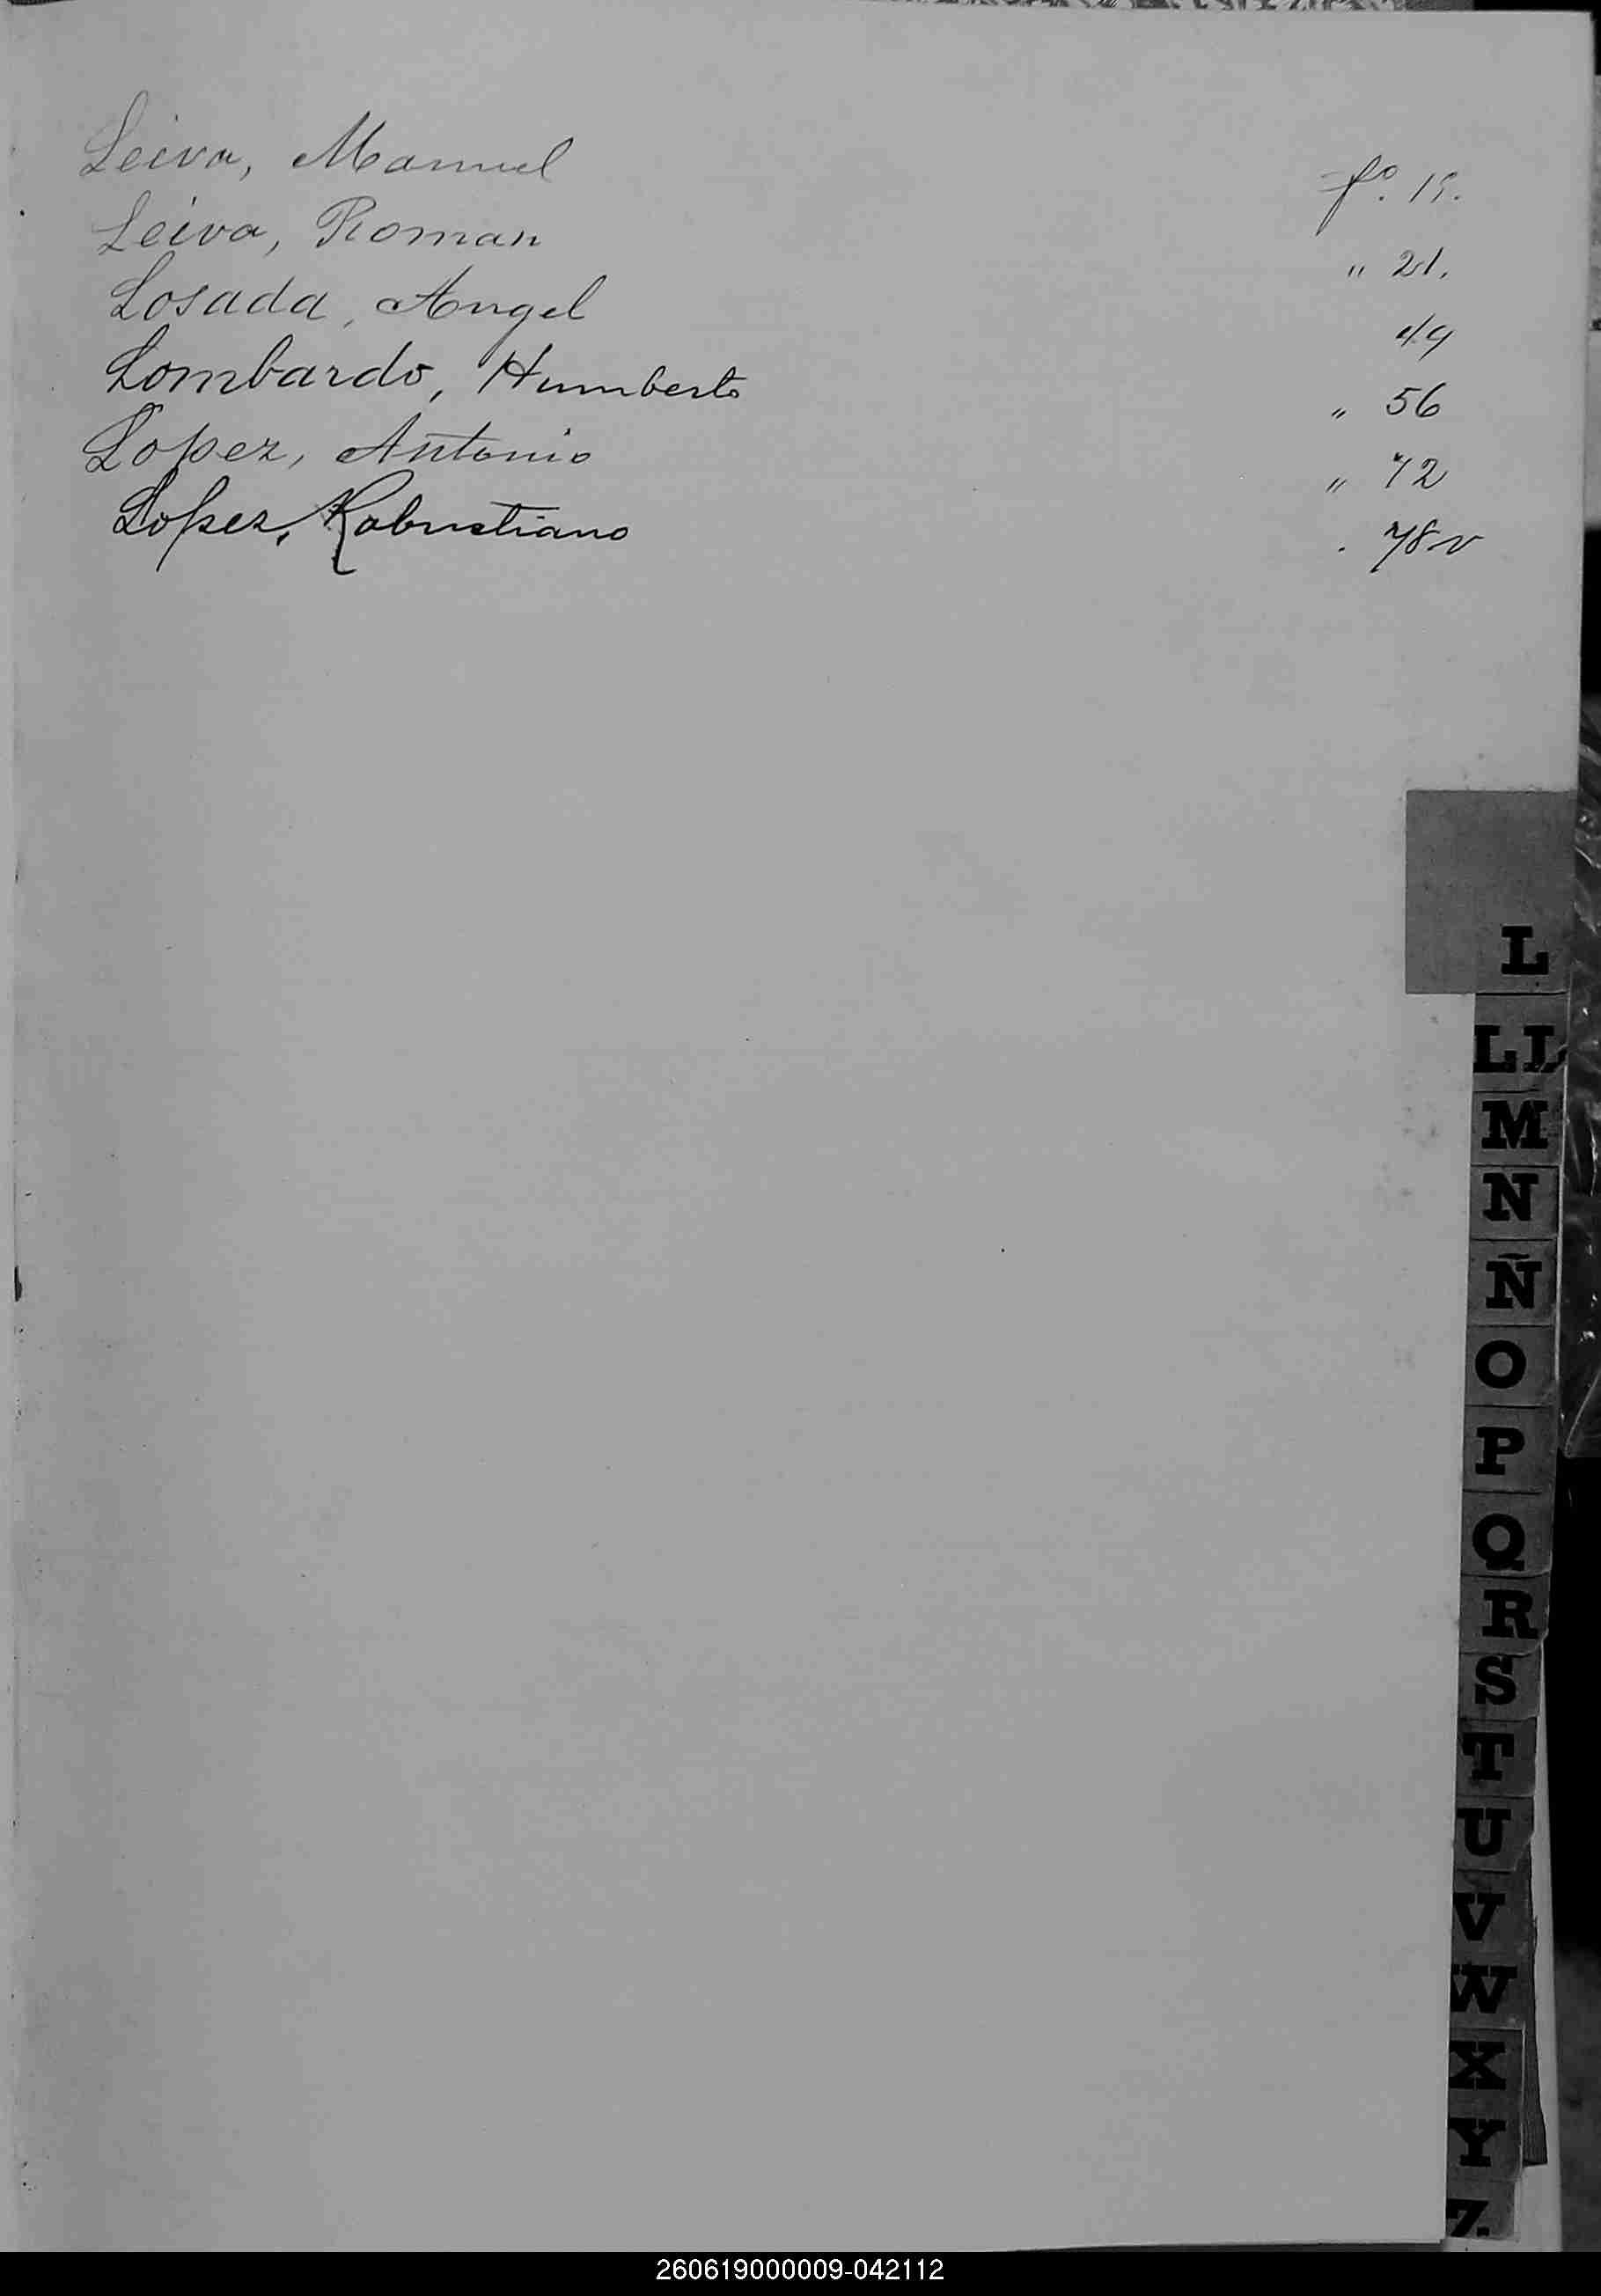 Leiva, Manuel fº. 15.
Leiva, Roman " 21.
Losada, Angel 49
Lombardo, Humberto " 56
Lopez, Antonio " 72
Lopez, Robustiano . 78 v
L
LL
M
N
Ñ
O
P
Q
R
S
T
U
V
W
X
Y
Z
260619000009-042112